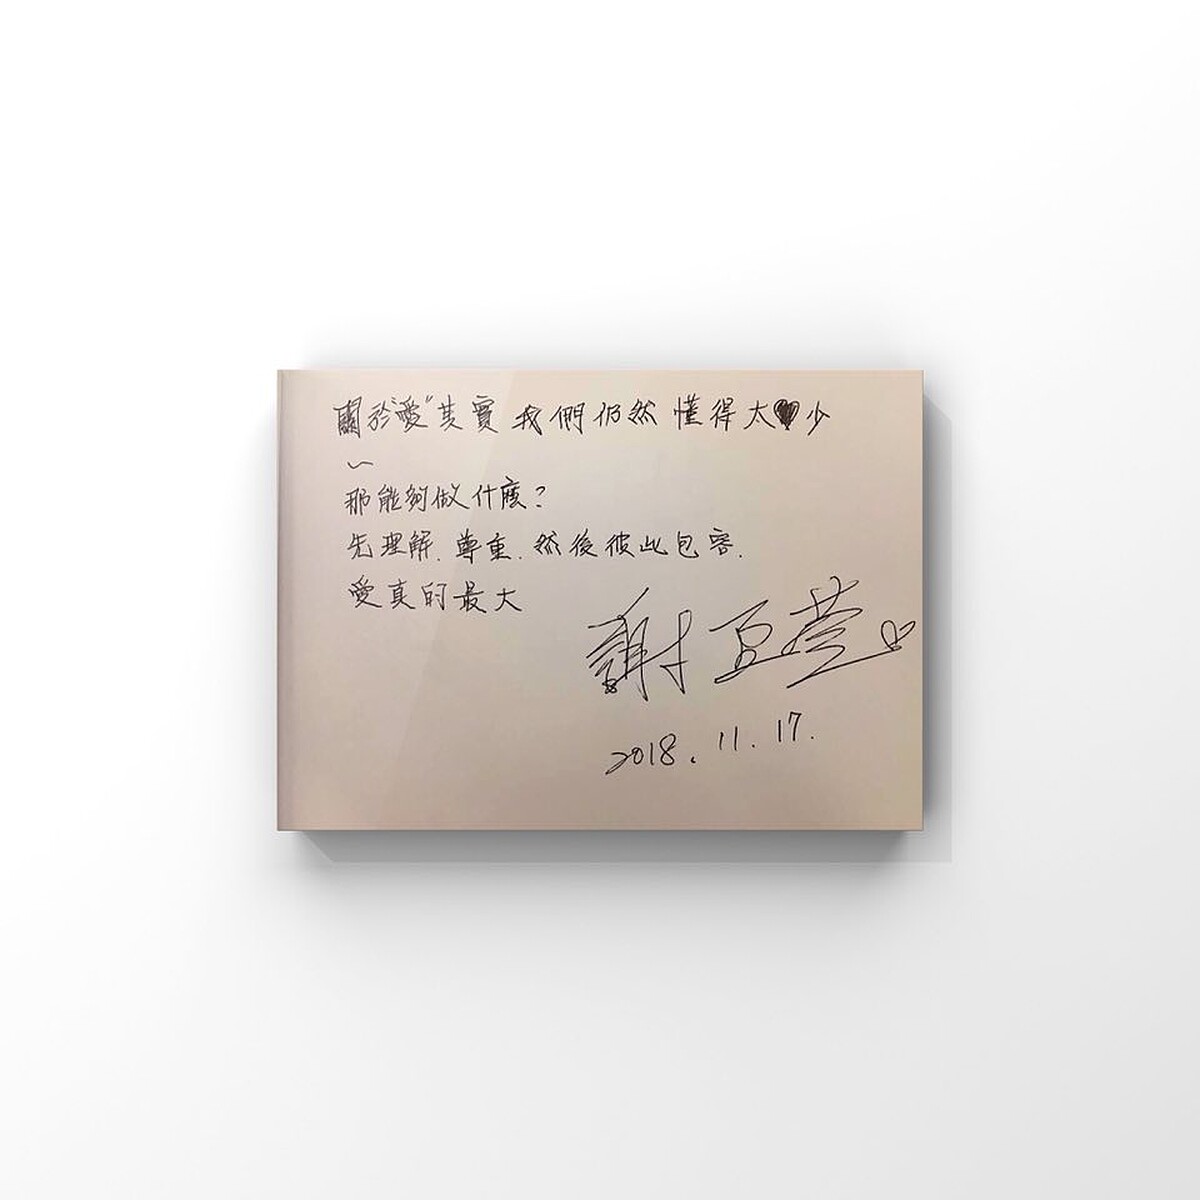 關於"愛"其實我們仍然懂得太♥少
~
那能夠做什麼?
先理解.尊重.然後彼此包容.
愛真的最大
謝亘萱♡
2018.11.17.